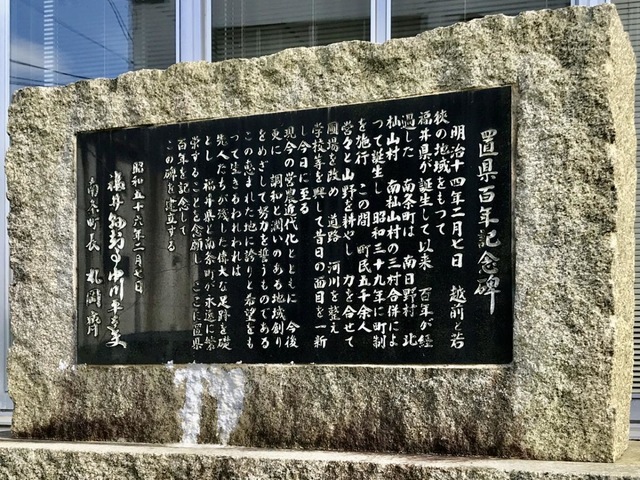 置県百年記念碑
明治十四年二月七日 越前と若
狭の地域をもつて
福井県が誕生して以来 百年が経
過した 南条町は 南日野村 北
杣山村 南杣山村の三村合併によ
つて誕生し 昭和三十九年に町制
を施行 この間 町民五千余人
営々と 山野を耕やし 力を合せて
圃場を改め 道路 河川を整え
学校等を興して昔日の面目を一新
し今日に至る
現今の営農近代化とともに 今後
更に 調和と潤いのある地域創り
をめざして努力を誓うものである
この恵まれた地に誇りと希望をも
つて生きるわれわれは
先人たちが残した偉大な足跡を礎
とし 福井県と南条町が永遠に繁
栄することを念願し ここに置県
百年を記念して
この碑を建立する
昭和五十六年二月七日
福井県知事 中川平太夫
南条町長 札岡 齊